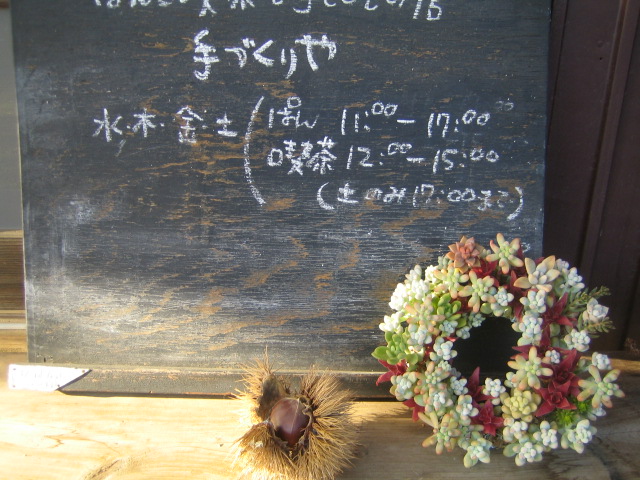 手づくりや
水・木・金・土 ぱん 11:00-17:00
喫茶 12:00-15:00
(土のみ17:00まで)